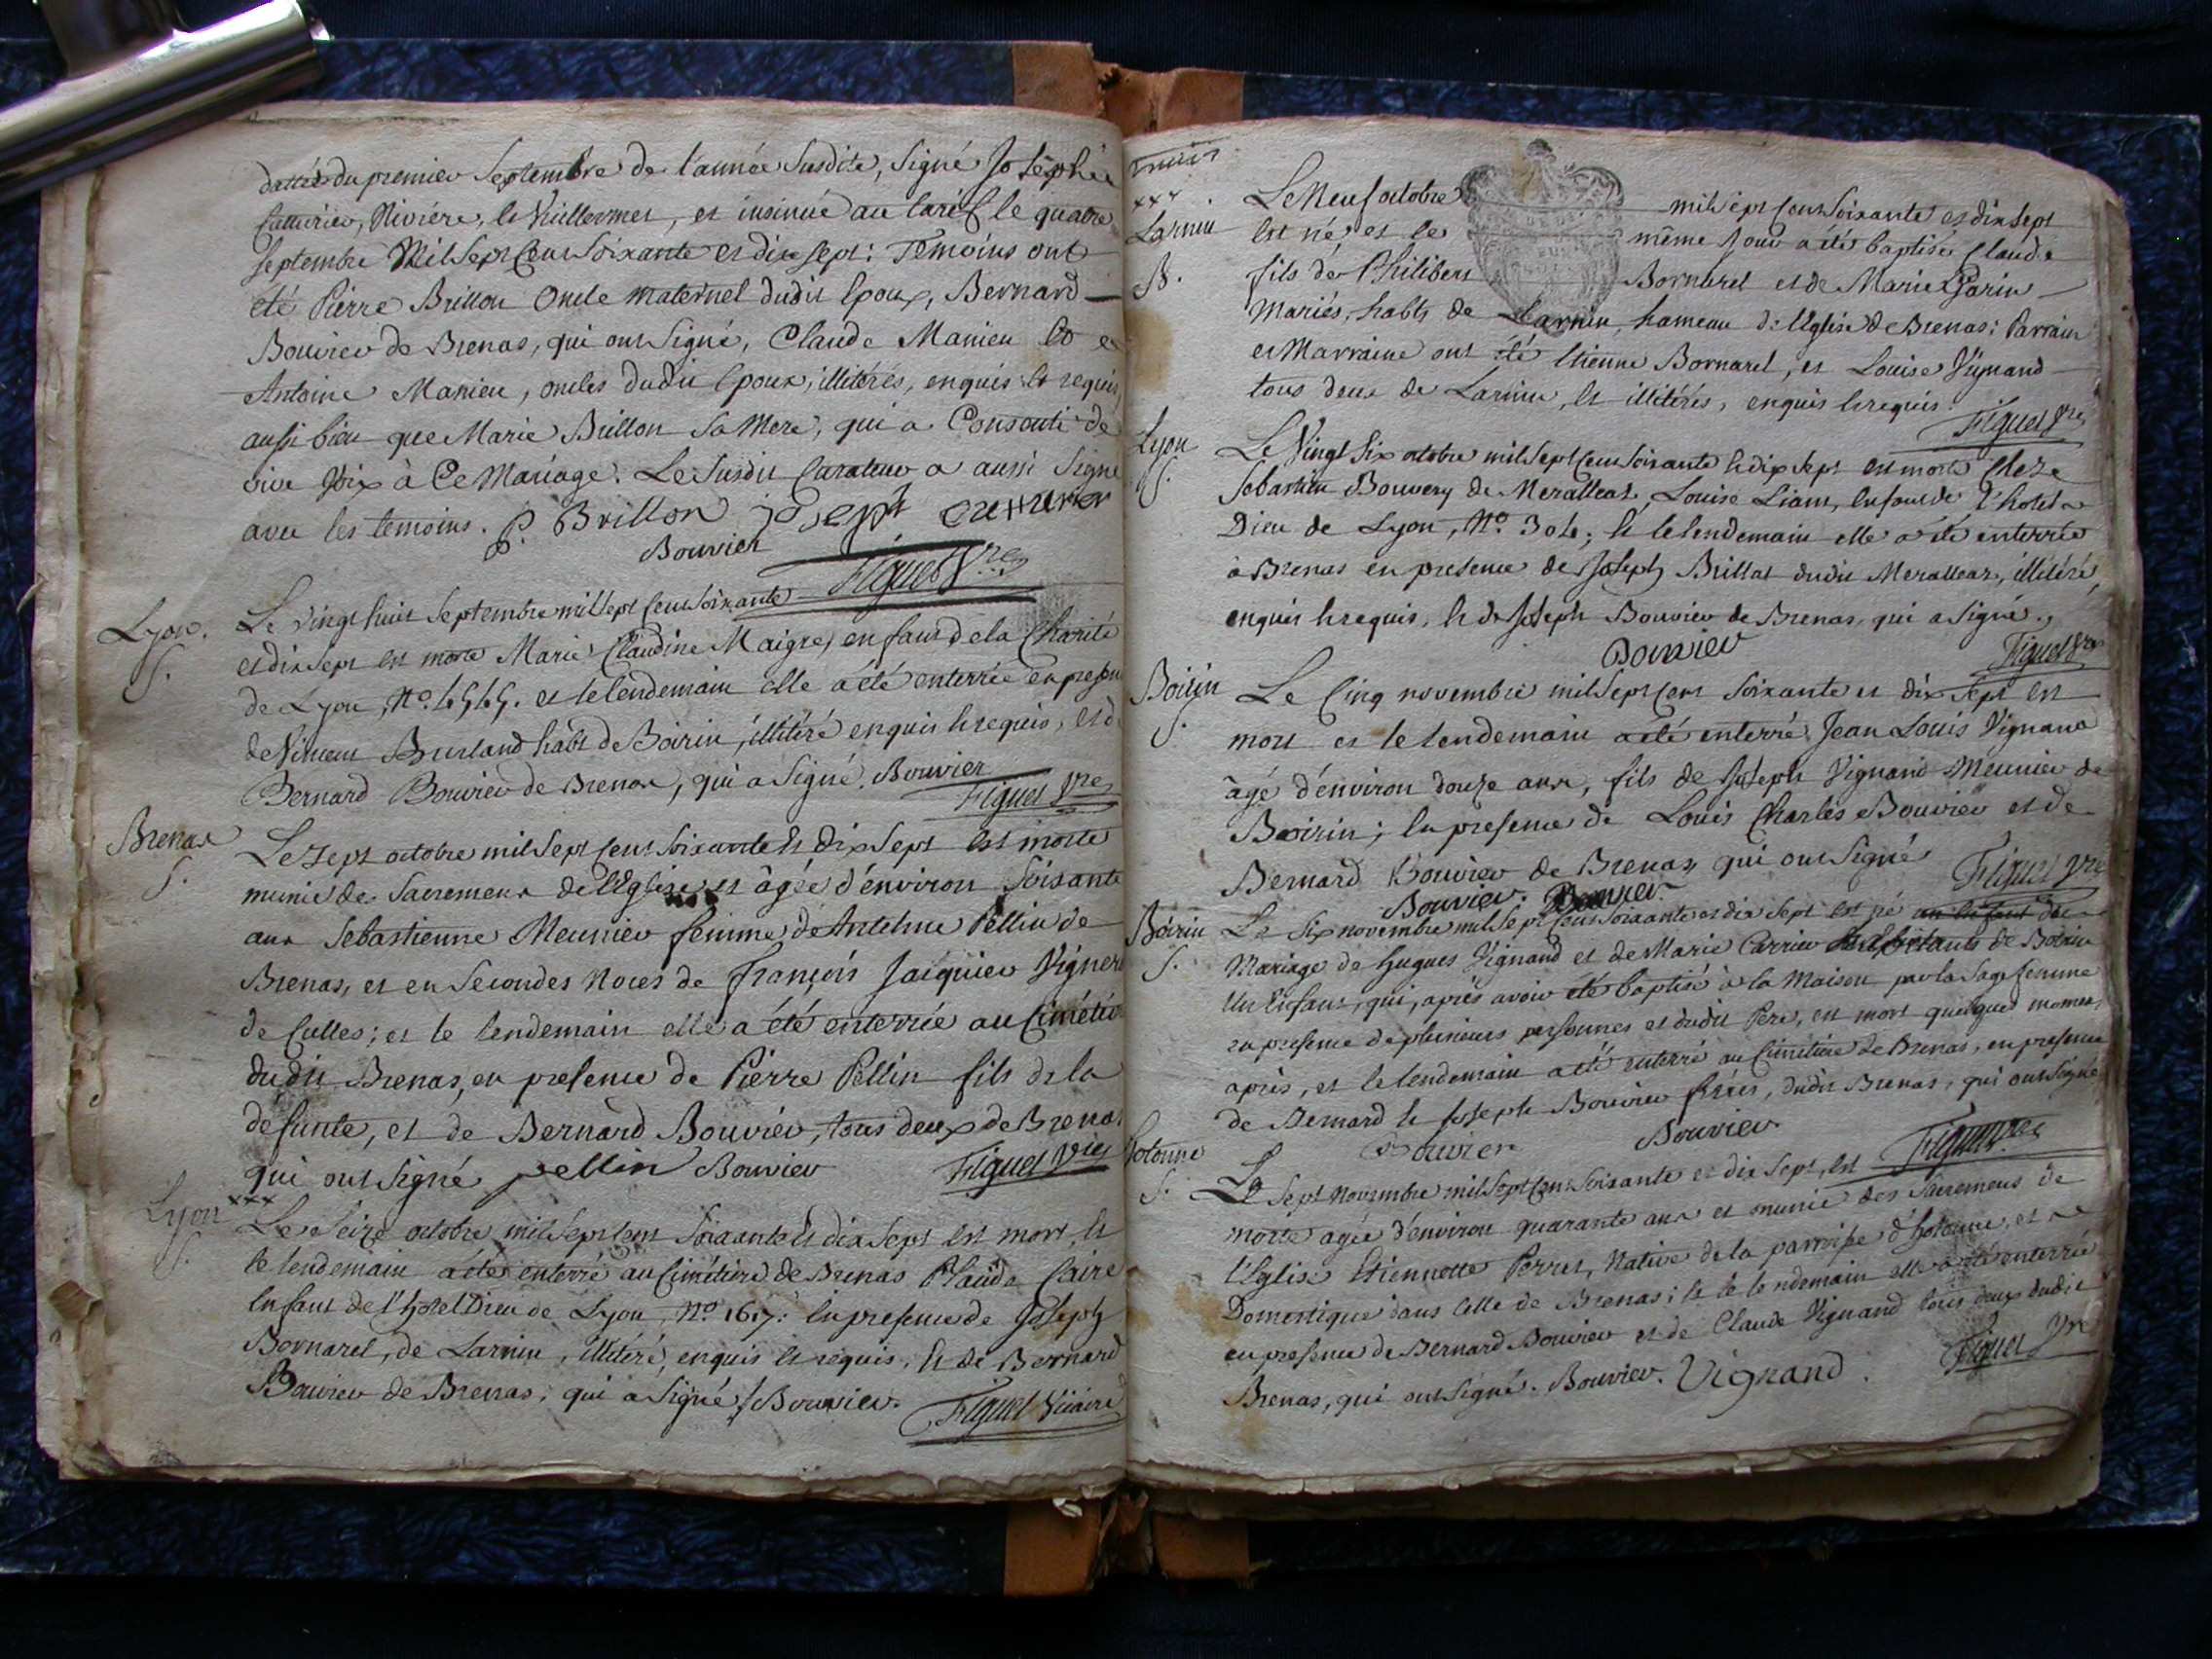 dattée du premier Septembre de l'année Susdite, Signé Joseph
Cutturier, Rivière, le Vuillermet, et insinué au tarif le quatre
septembre Mil Sept Cent Soixante et dix sept: Temoins ont
été Pierre Brillon Oncle maternel dudit Epoux, Bernard
Bouvier de Brenas, qui ont Signé, Claude Manieu et
Antoine Manieu, oncles dudit Epoux, illitérés, enquis et requis,
aussi bien que Marie Brillon Sa Mere, qui a Consenti de
vive Voix à Ce Mariage. Le Susdit Curateur a aussi Signé
avec les temoins. P. Brillon joseph cutturier
Bouvier
Figuet Vre
Lyon.
S.
Le Vingt huit Septembre mil Sept Cent Soixante
et dix sept est morte Marie Claudine Maigre, enfant de la Charité
de Lyon, No. et le lendemain elle a été enterrée en presence
de Vincent Burland habt de Boirin, illitéré enquis et requis, et de
Bernard Bouvier de Brenas, qui a Signé. Bouvier
Figuet Vre
Brenas
S.
Le Sept octobre mil Sept Cent Soixante et dix Sept est morte
munie des Sacremens de l'Eglise et âgée d'environ Soixante
ans Sebastienne Meunier femme de Antelme Pellin de
Brenas, et en Secondes Noces de françois Jaiquier Vigneron
de Culles; et le lendemain elle a été enterrée au Cimétière
dudit Brenas, en presence de Pierre Pellin fils de la
défunte, et de Bernard Bouvier, tous deux de Brenas
qui ont Signé pellin Bouvier Figuet Vre
Lyon xxx
S.
Le Seize octobre mil Sept Cent Soixante et dix Sept est mort, et
le lendemain a été enterré au Cimétière de Brenas Claude Caire
Enfant de l'hotel Dieu de Lyon, No. 1617: En presence de Joseph
Bornarel, de Larnin, illitéré, enquis et requis, et de Bernard
Bouvier de Brenas, qui a Signé / Bouvier.
Figuet Vicaire
xxx
Larnin
B.
Le Neuf octobre mil Sept Cent Soixante et dix Sept
est né et le même jour a été baptisé Claude
fils de Philibert Bornarel et de Marie Garin
Mariés, habts de Larnin, hameau de l'Eglise de Brenas: Parrain
et Marraine ont été Etienne Bornarel, et Louise Vignand
tous deux de Larnin, et illitérés, enquis et requis.
Figuet Vre
Lyon
S.
Le Vingt Six octobre mil Sept Cent Soixante et dix Sept est morte Chez
Sebastien Bouvery de Meralleat, Louise Liam, Enfant de l'hotel
Dieu de Lyon, No. et le lendemain elle a été enterrée
à Brenas en presence de Joseph Brillat dudit Meralleat, illitéré,
enquis et requis, et de Joseph Bouvier de Brenas, qui a Signé.
Bouvier
Figuet Vre
Boirin
S.
Le Cinq novembre mil Sept Cent Soixante et dix Sept est
mort et le lendemain a été enterré Jean Louis Vignand
âgé d'environ douze ans, fils de Joseph Vignand Meunier de
Boirin; En presence de Louis Charles Bouvier et de
Bernard Bouvier de Brenas qui ont Signé
Bouvier. Bouvier.
Figuet Vre
Boirin
S.
Le Six novembre mil Sept Cent Soixante et dix Sept est né un Enfant du
Mariage de Hugues Vignand et de Marie Carrier habitants de Boirin
Un Enfant, qui, après avoir été baptisé à la Maison par la Sage femme
en presence de plusieurs personnes et dudit Pere, est mort quelques momens
après, et le lendemain a été enterré au Cimétière de Brenas, en presence
de Bernard et Joseph Bouvier frères, dudit Brenas, qui ont Signé
Bouvier Bouvier
Figuet Vre
hotonne
S.
Le Sept Novembre mil Sept Cent Soixante et dix Sept, est
morte agée d'environ quarante ans et munie des Sacremens de
l'Eglise Etiennette Perret, Native de la parroisse d'hotonne, et
Domestique dans Celle de Brenas; et le lendemain elle a été enterrée
en presence de Bernard Bouvier et de Claude Vignand tous deux dudit
Brenas, qui ont Signé. Bouvier. Vignand.
Figuet Vre